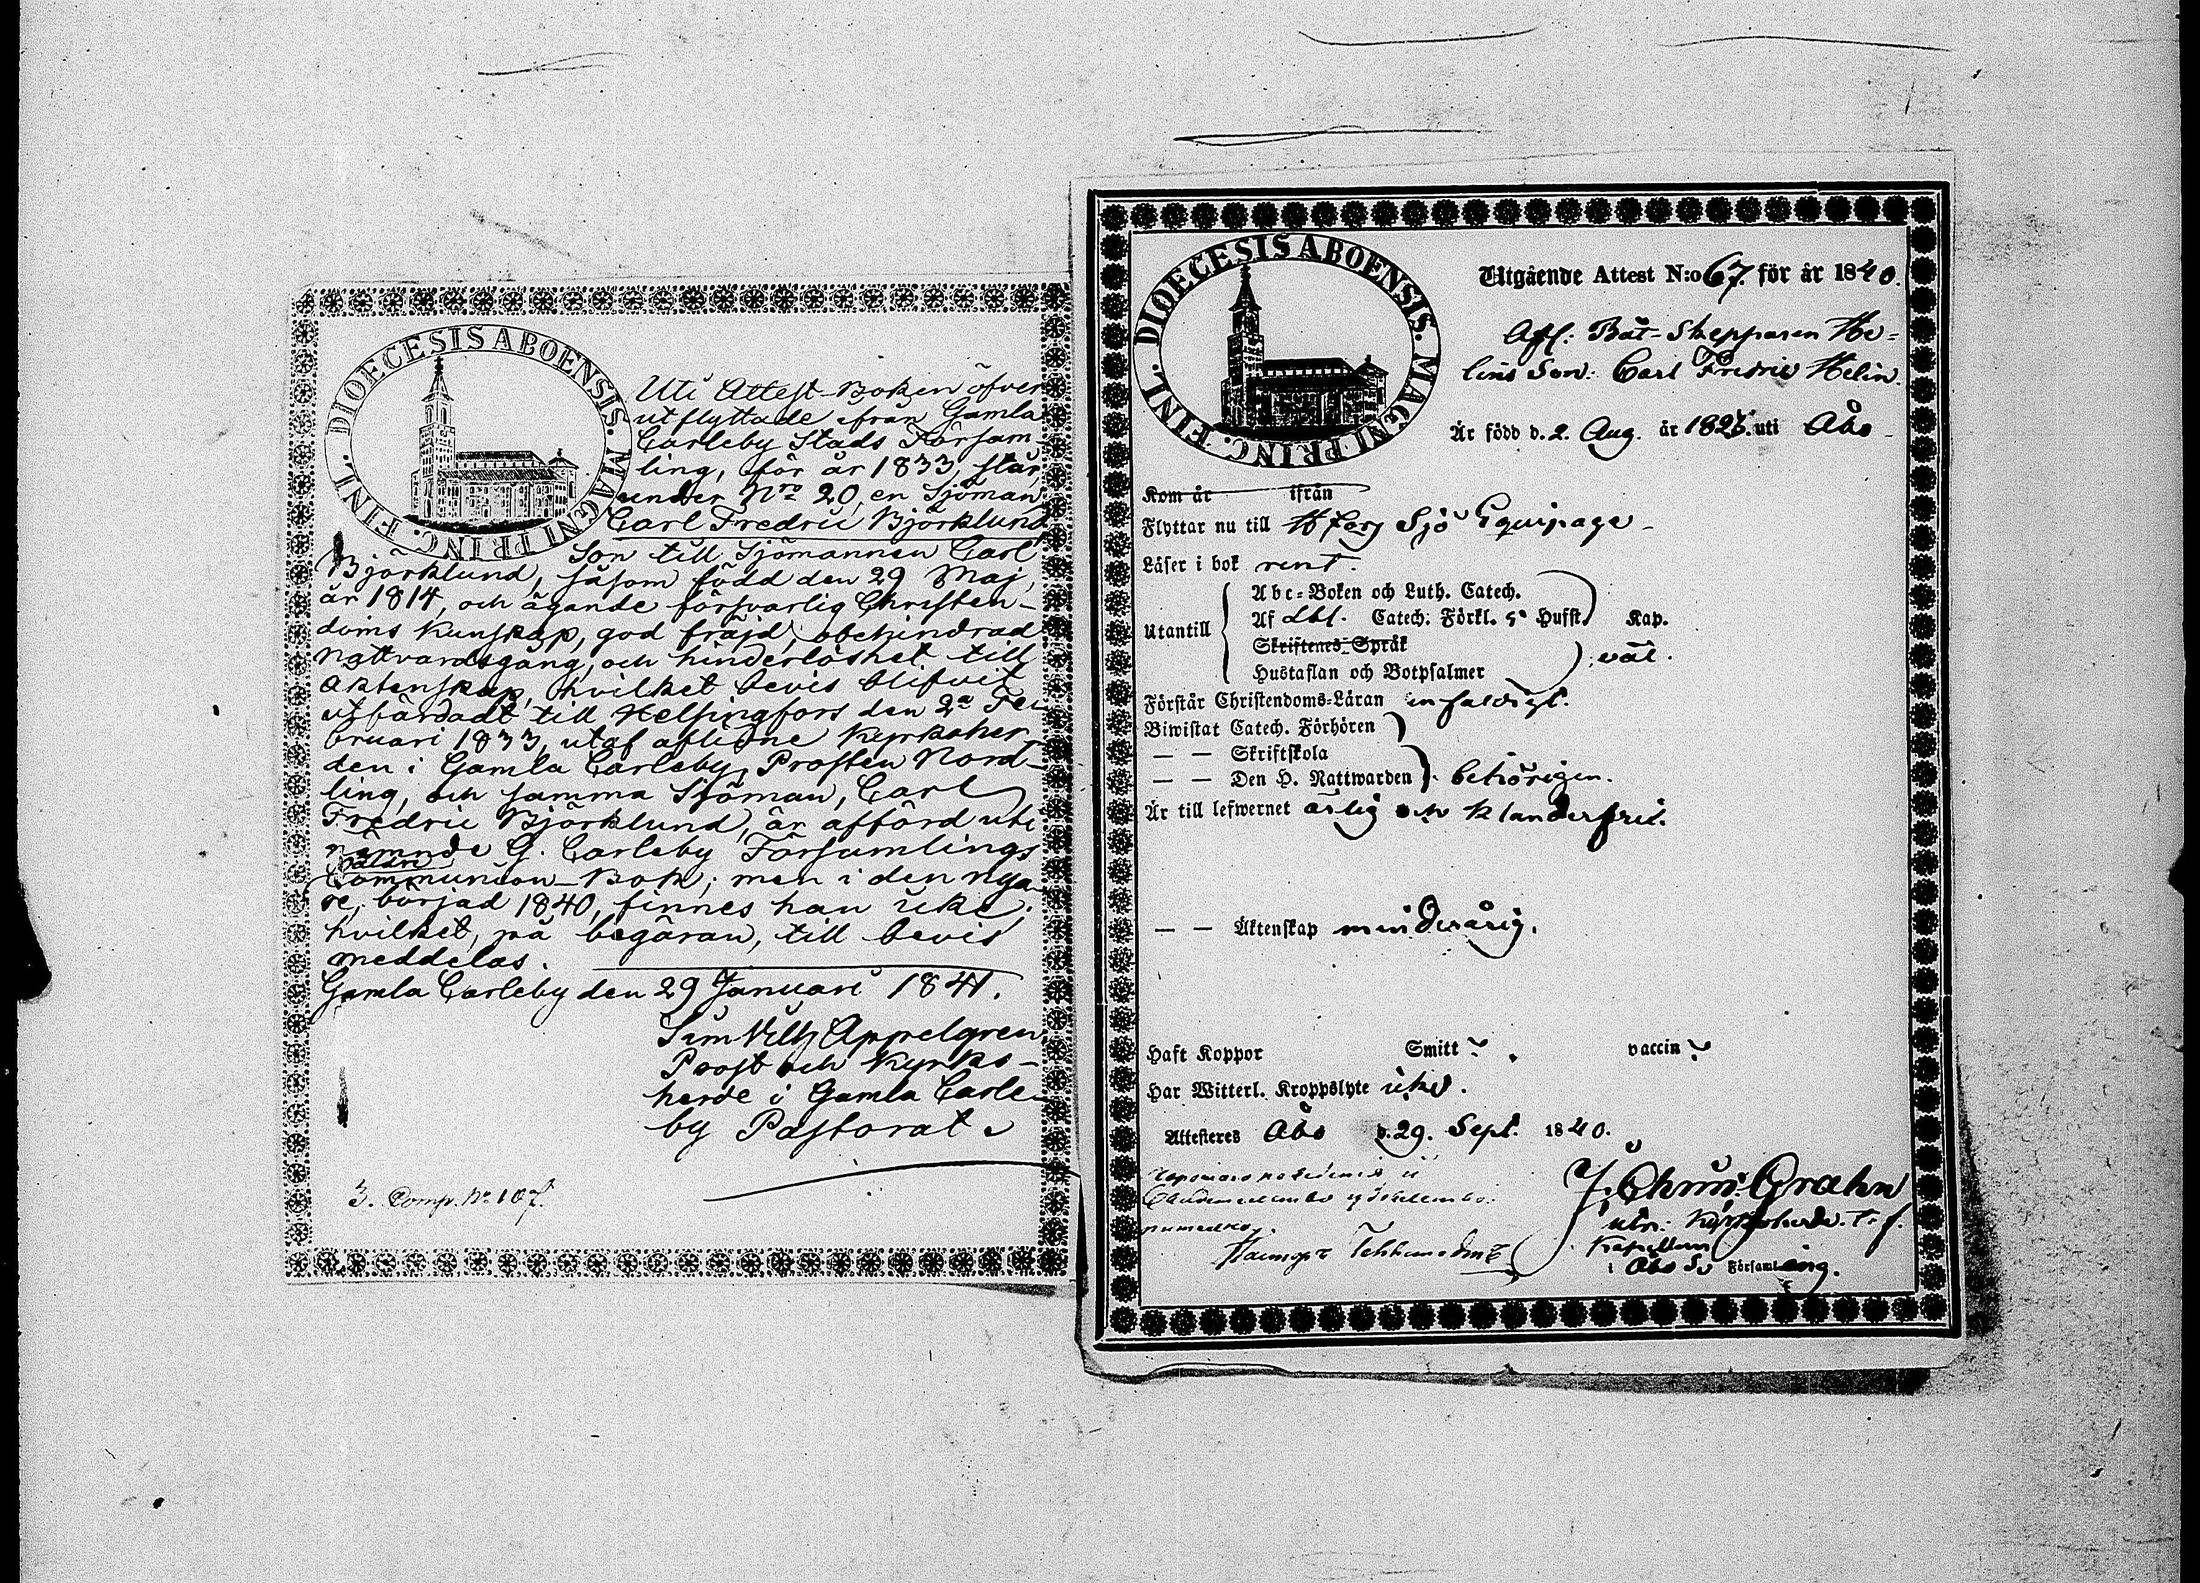 DIOECESIS ABOENSIS. MAGNI PRINC. FINL.
Uti Attest-Boken öfver
utflyttade ifrån Gamla
Carleby Stads Försam-
ling, för år 1833, står,
under Nro 20, en Sjöman,
Carl Fredric Björklund
Son till Sjömannen Carl
Björklund, såsom född den 29 Maj,
år 1814, och ägande försvarlig Christen-
doms kunskap, god fräjd, obehindrad
Nattvardsgång, och hinderlöshet till
äktenskap, hvilket bevis blifvit
utfärdadt till Helsingfors den 2a Fe-
bruari 1833, utaf aflidne Kyrkoher-
den i Gamla Carleby, Prosten Nord-
ling, och samma Sjöman, Carl
Fredric Björklund, är afförd uti
nämnde G. Carleby Församlings
äldre
Communion-Bok; men i den nya-
re, börjad 1840, finnes han icke;
hvilket, på begäran, till bevis
meddelas.
Gamla Carleby den 29 Januari 1841.
Sim Vilh Appelgren
Prost och Kyrko-
herde i Gamla Carle-
by Pastorat.
3. Comp. No 107.
DIOECESIS ABOENSIS. MAGNI PRINC. FINL.
Utgående Attest N:o 67. för år 1840.
Afl: Båt-Skepparen He-
lins Son: Carl Fredric Helin.
Är född d. 2. Aug. år 1825. uti Åbo
Kom år ifrån
Flyttar nu till H:fors Sjö Equipage
Läser i bok rent.
Utantill
Abc-Boken och Luth. Catech.
Af Catech: Förkl. 5 Hufst. Kap.
Skriftenes Språk
Hustaflan och Botpsalmer
väl.
Förstår Christendoms-Läran enfaldigt.
Biwistat Catech. Förhören
— — Skriftskola
— — Den H. Nattwarden behörigen.
Är till lefwernet ärlig och klanderfri.
— — Äktenskap minderårig.
Haft Koppor Smitt vaccin
Har Witterl. Kroppslyte icke.
Attesteres Åbo d. 29. Sept. 1840.
Grahn
Kapellan
i Åbo Sv Församling.